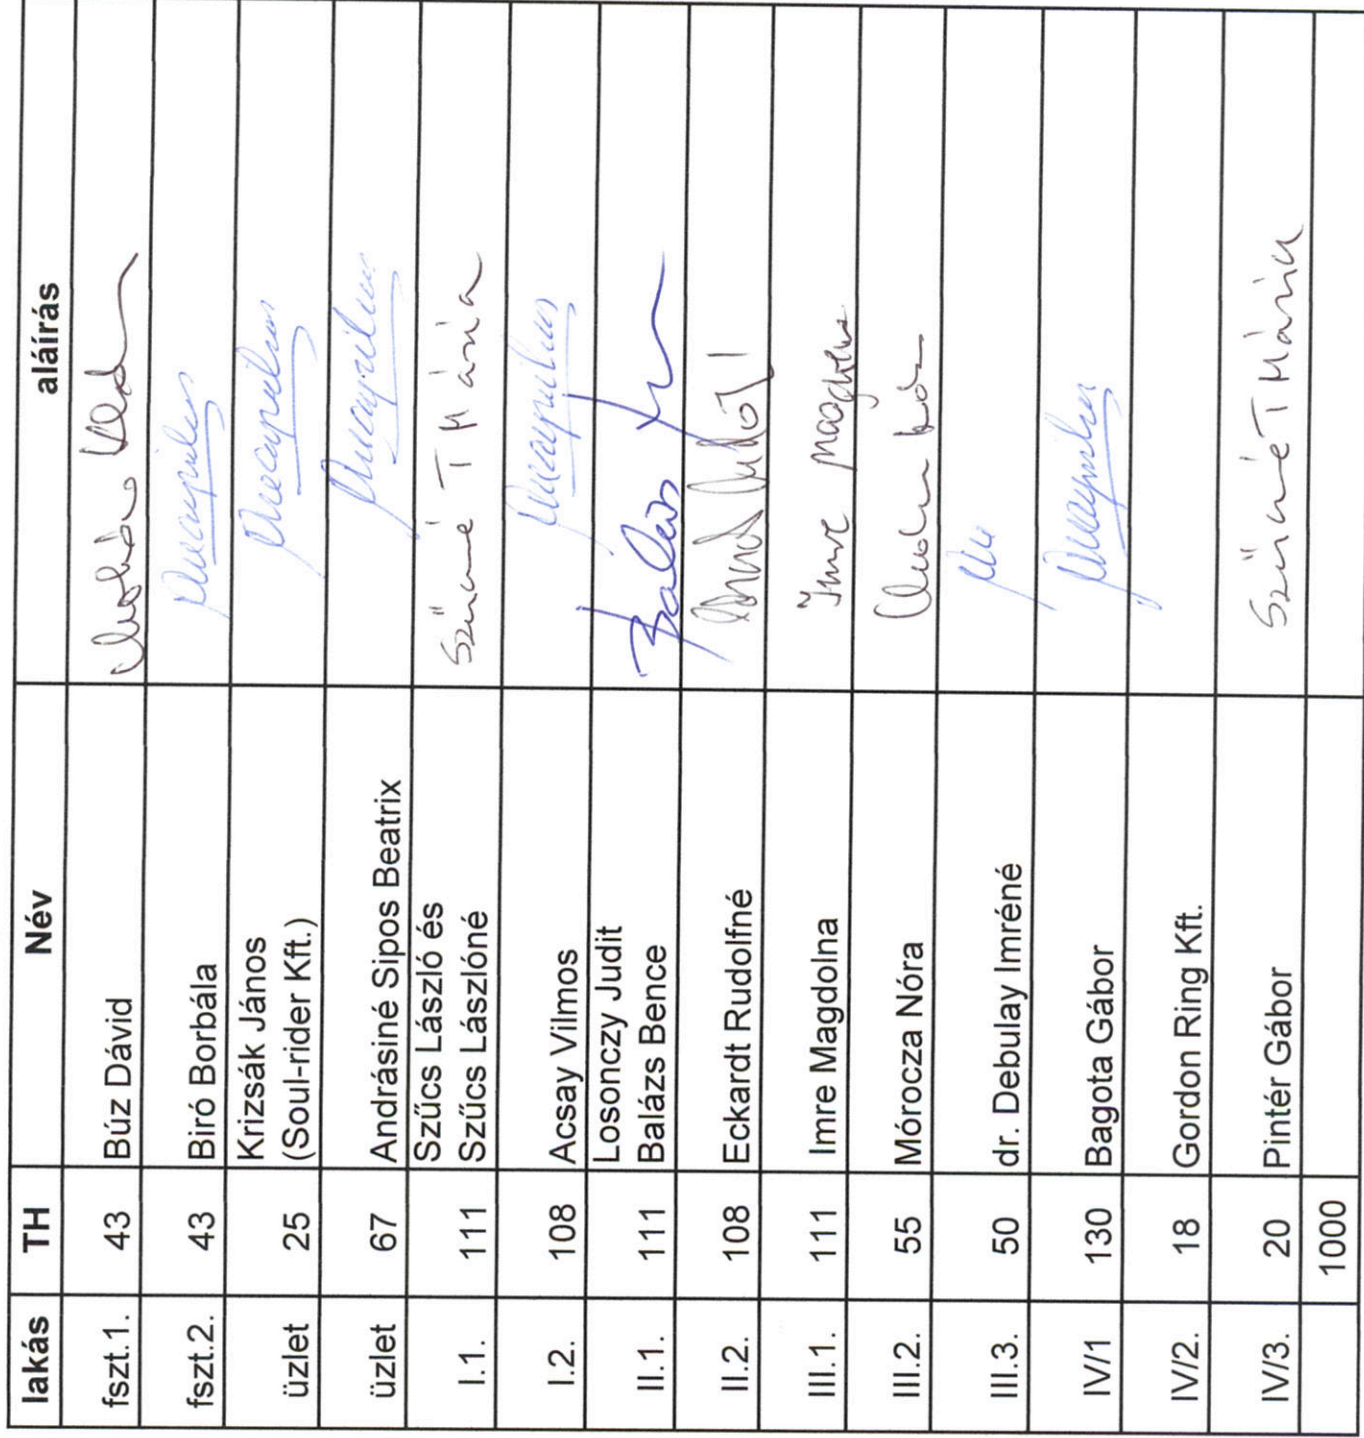 lakás TH Név aláírás
fszt.1. 43 Búz Dávid
fszt.2. 43 Biró Borbála
üzlet 25 Krizsák János
(Soul-rider Kft.)
üzlet 67 Andrásiné Sipos Beatrix
I.1. 111 Szűcs László és
Szűcs Lászlóné Szűcsné T Mária
I.2. 108 Acsay Vilmos
II.1. 111 Losonczy Judit
Balázs Bence Balázs
II.2. 108 Eckardt Rudolfné
III.1. 111 Imre Magdolna Imre Magdolna
III.2. 55 Mórocza Nóra
III.3. 50 dr. Debulay Imréné
IV/1 130 Bagota Gábor
IV/2. 18 Gordon Ring Kft.
IV/3. 20 Pintér Gábor Szűcsné T Mária
1000